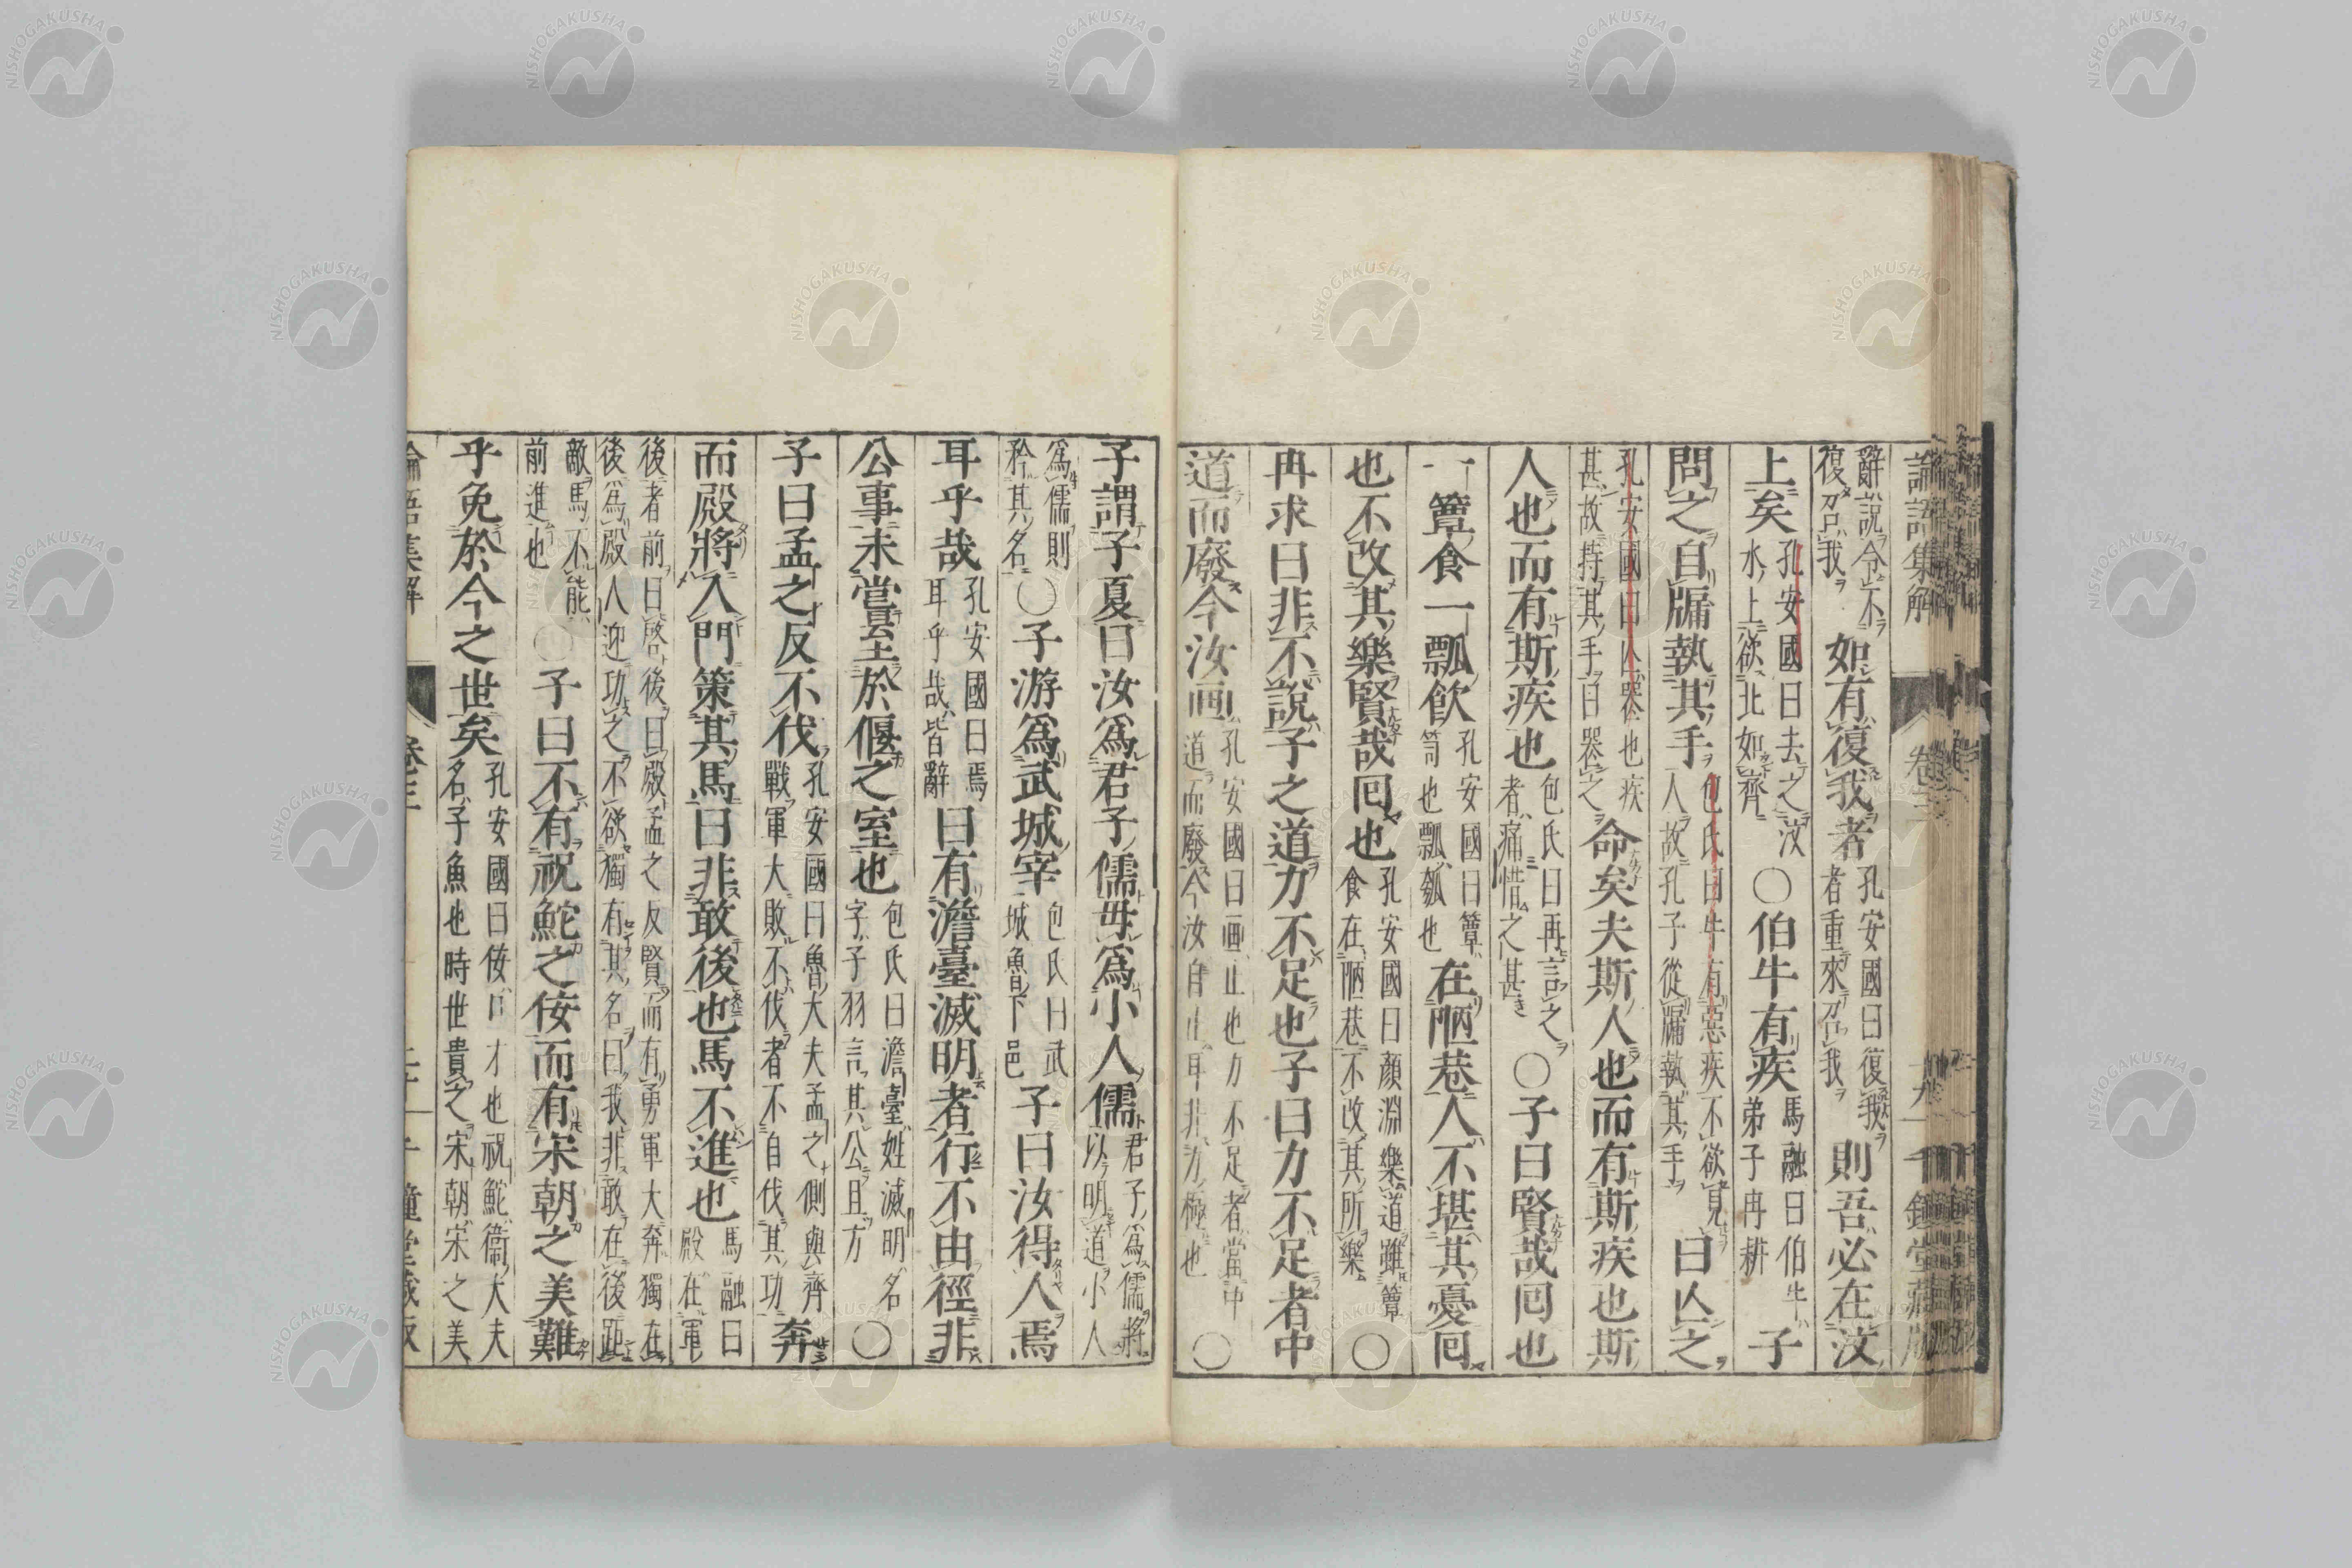 論語集解 卷三 十九 千鍾堂藏版
辭說令不復召我如有復我者孔安國曰復我者重來召我則吾必在汶
上矣孔安國曰去之汶水上欲北如齊○伯牛有疾馬融曰伯牛弟子冉耕子
問之自牖執其手包氏曰牛有惡疾不欲見人故孔子從牖執其手曰亾之
孔安國曰亾喪也疾甚故持其手曰喪之命矣夫斯人也而有斯疾也斯
人也而有斯疾也包氏曰再言之者痛惜之甚○子曰賢哉囘也
一簞食一瓢飲孔安國曰簞笥也瓢瓠也在陋巷人不堪其憂囘
也不改其樂賢哉囘也孔安國曰顏淵樂道雖簞食在陋巷不改其所樂○
冉求曰非不說子之道力不足也子曰力不足者中
道而廢今汝画孔安國曰画止也力不足者當中道而廢今汝自止耳非力極也○
子謂子夏曰汝爲君子儒毋爲小人儒君子爲儒將以明道小人
爲儒則矜其名○子游爲武城宰包氏曰武城魯下邑子曰汝得人焉
耳乎哉孔安國曰焉耳乎哉皆辭曰有澹臺滅明者行不由徑非
公事未嘗至於偃之室也包氏曰澹臺姓滅明名字子羽言其公且方○
子曰孟之反不伐孔安國曰魯大夫孟之側與齊戰軍大敗不伐者不自伐其功奔
而殿將入門策其馬曰非敢後也馬不進也馬融曰殿在軍
後者前曰啓後曰殿孟之反賢而有勇軍大奔獨在後爲殿人迎功之不欲獨有其名曰我非敢在後距
敵馬不能前進也○子曰不有祝鮀之佞而有宋朝之美難
乎免於今之世矣孔安國曰佞口才也祝鮀衞大夫名子魚也時世貴之宋朝宋之美
論語集解 卷三 二十 千鍾堂藏版
NISHOGAKUSHA